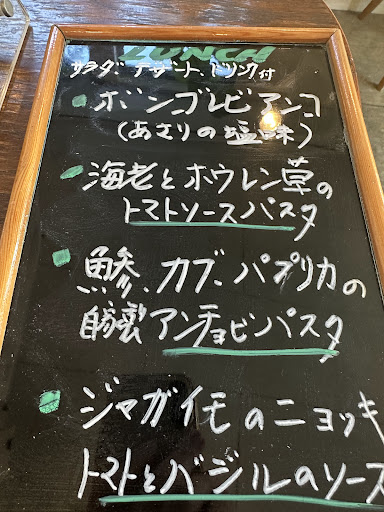 LUNCH
サラダ・デザート、ドリンク付
ボンゴレビアンコ
(あさりの塩味)
海老とホウレン草の
トマトソースパスタ
鰺、カブ、パプリカの
自家製アンチョビンパスタ
ジャガイモのニョッキ
トマトとバジルのソース